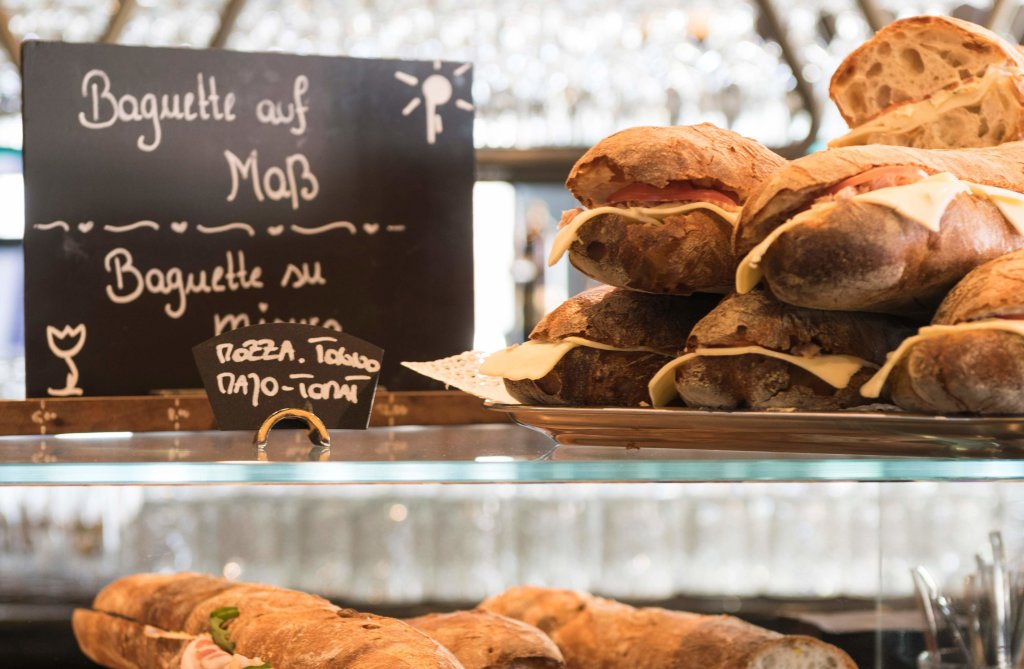 Baguette auf
Maß
Baguette su
MOZZA. TONNO
MAJO-TOMAT